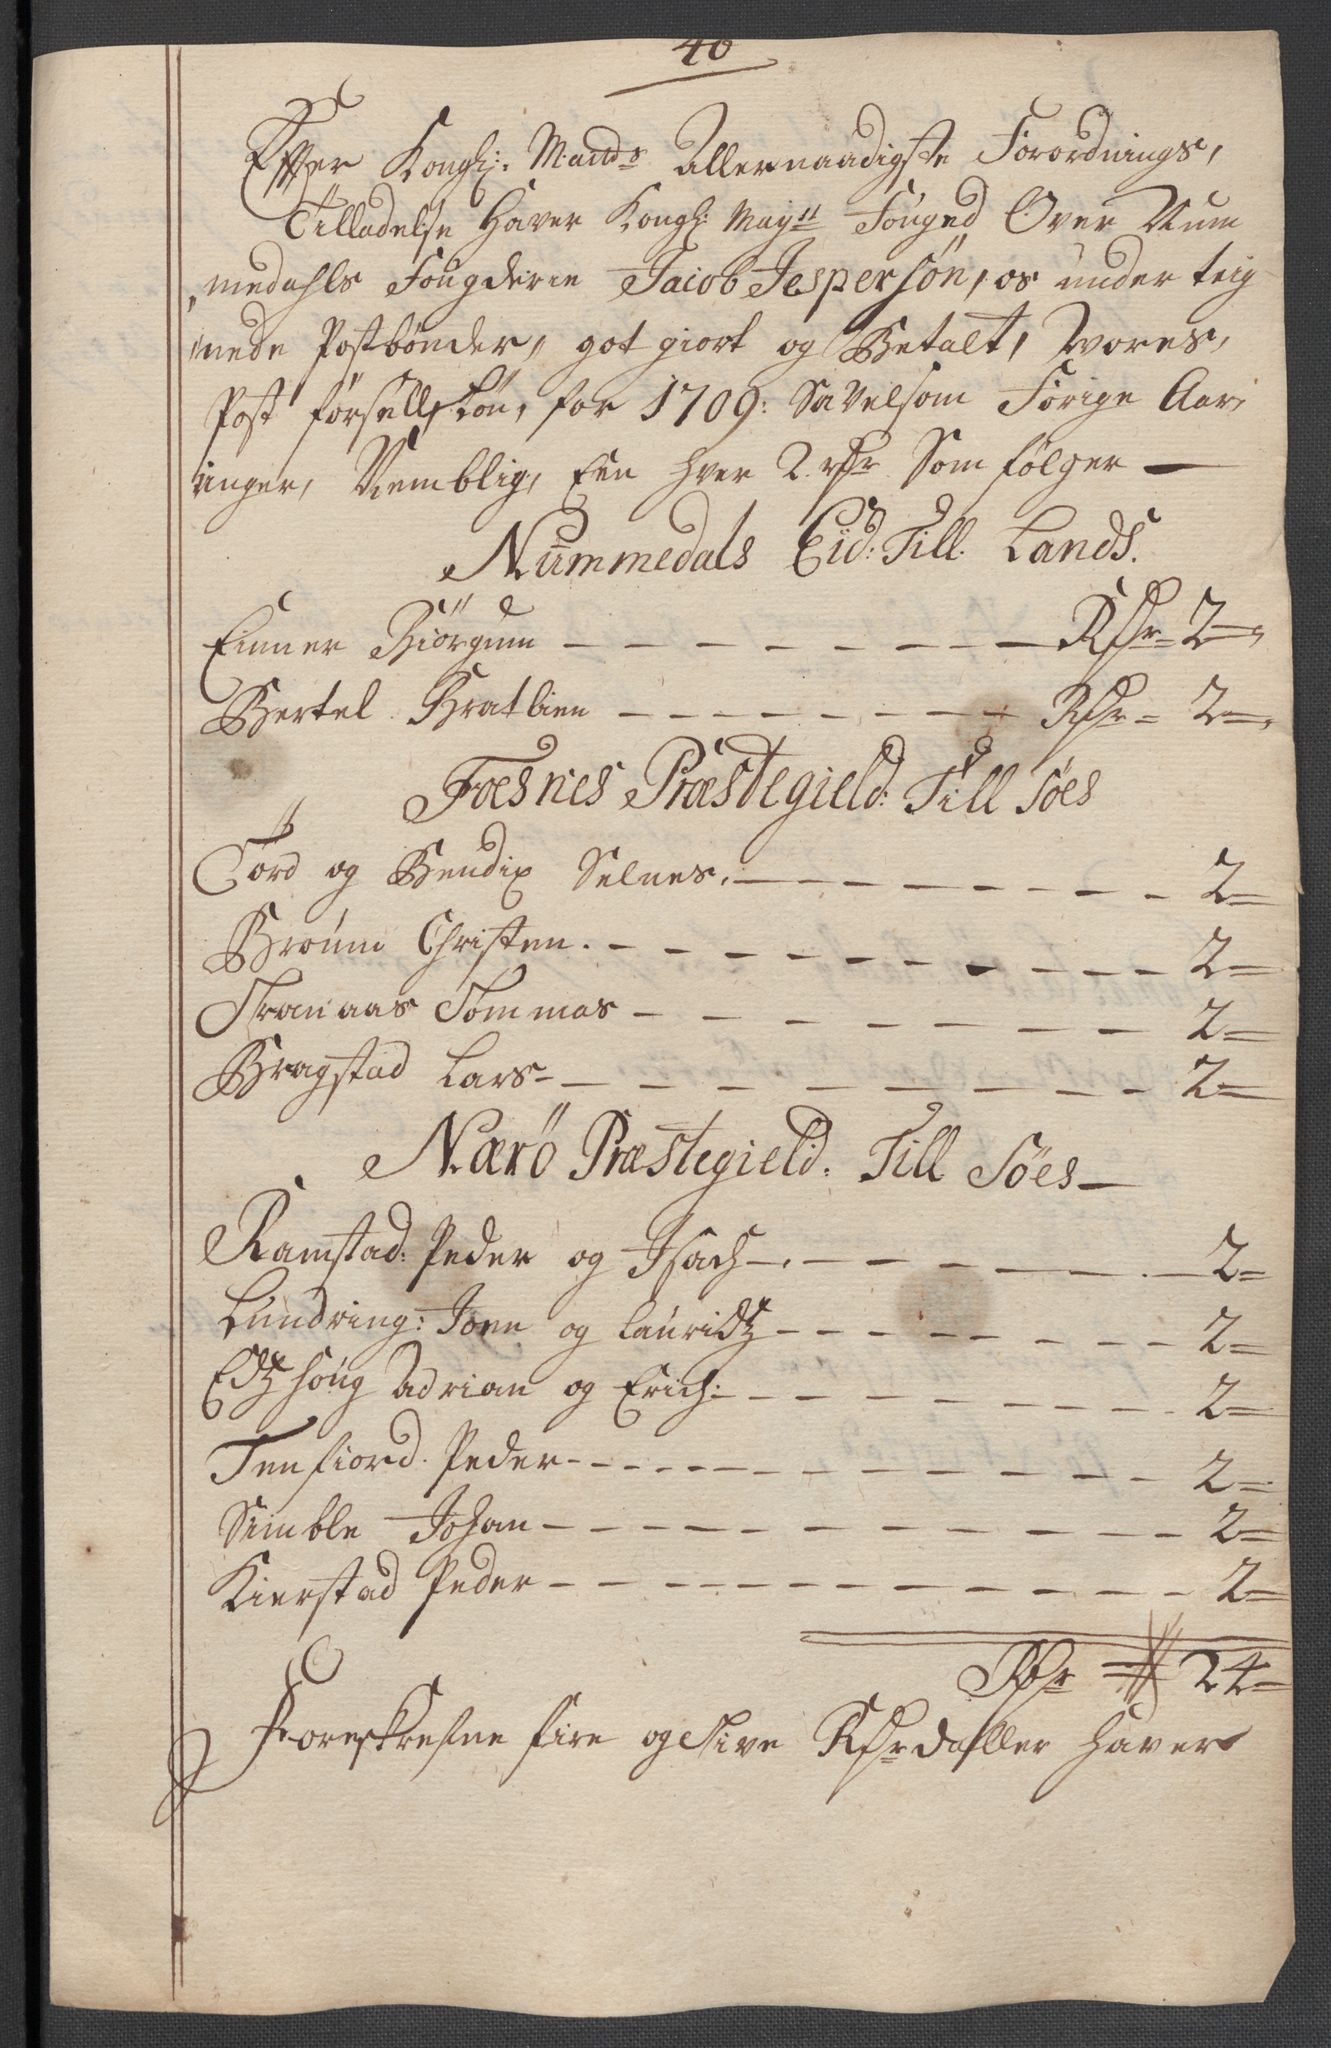 40
Effter Kongl: Mantds Allernaadigste Forordnings,
Tilladelse Haver Kongl: Maytt Fouged Over Num
medahls Fougderie Jacob Jespersøn, os under teig
nede Postbønder, got giort og Betalt, Wores,
Post førsell Løn, for 1709: Savelsom Forige Aar,
inger, Nemblig, Een hver 2 rdr Som følger —
Nummedals Eid: Till Lands.
Einner Biörgum — — — — — — — — Rdr 2
Bertel Bratbien — — — — — — — — Rdr 2
Foesnes Præstegield: Till Søes
Tord og Bendix Selnes. — — — — — — — — 2
Broum Christen. — — — — — — — — — 2
Tranaas Tommas — — — — — — — — 2
Bragstad Lars — — — — — — — — — 2
Nærö Præstegield. Till Söes —
Ramstad: Peder og Isach — — — — — — — 2
Lundring: Joen og Lauridtz — — — — — — — 2
Edtzhoug Adrian og Erich: — — — — — — — 2
Tenfiord. Peder — — — — — — — — — 2
Simble Johan — — — — — — — — — — 2
Kierstad Peder — — — — — — — — — — 2
Rdr 24
Foreskrefne fire og tive Rdr daller haver